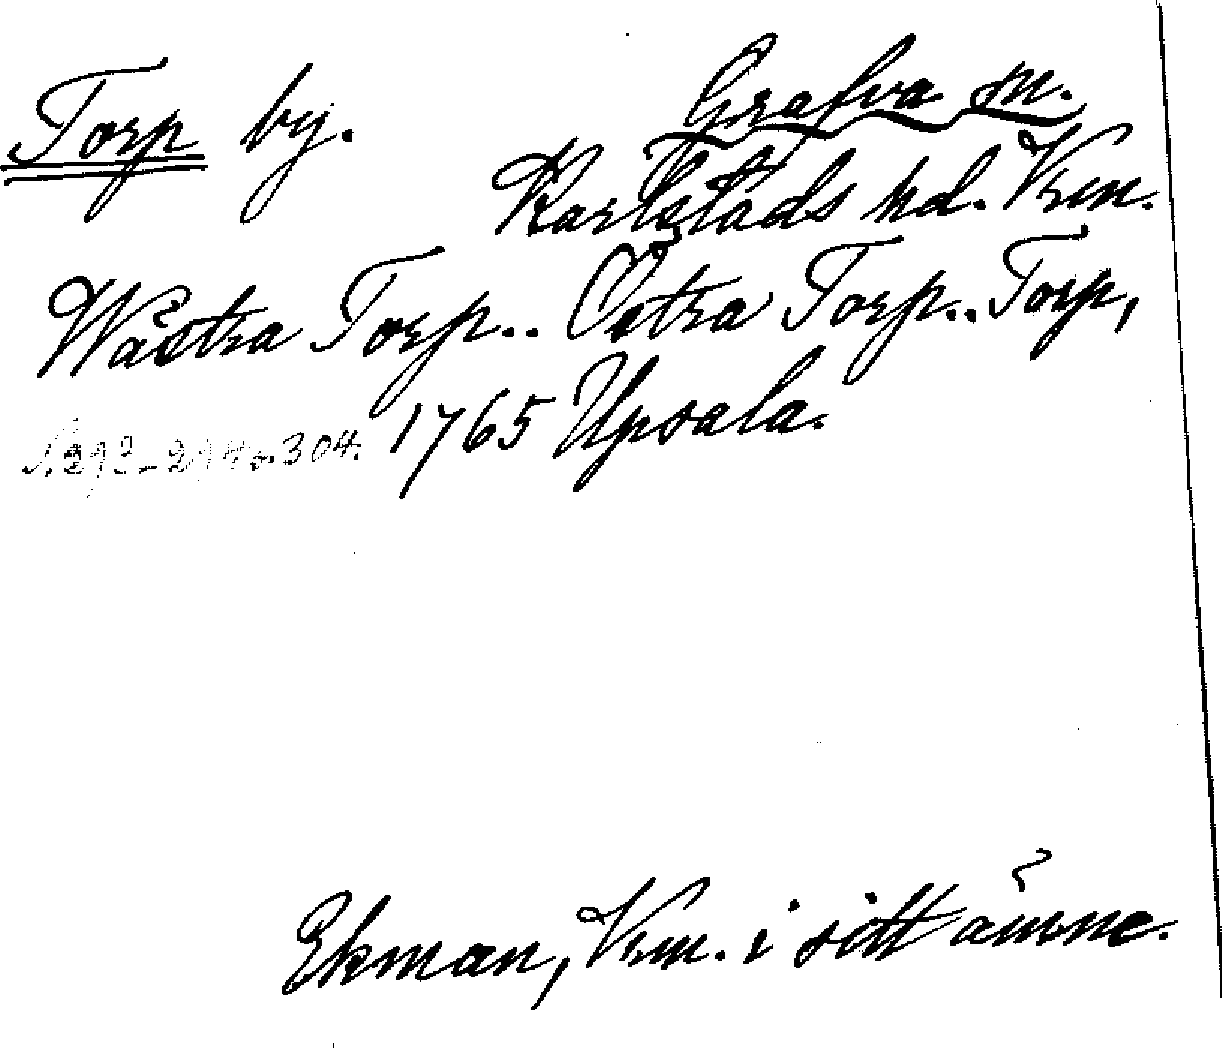 Torp by.
Grafva sn.
Karlstads hd. Vrm.
Wästra Torp.. Östra Torp.. Torp,
1765 Upsala.
s. 293-294 o. 304.
Ekman, Vrm. i sitt ämne.